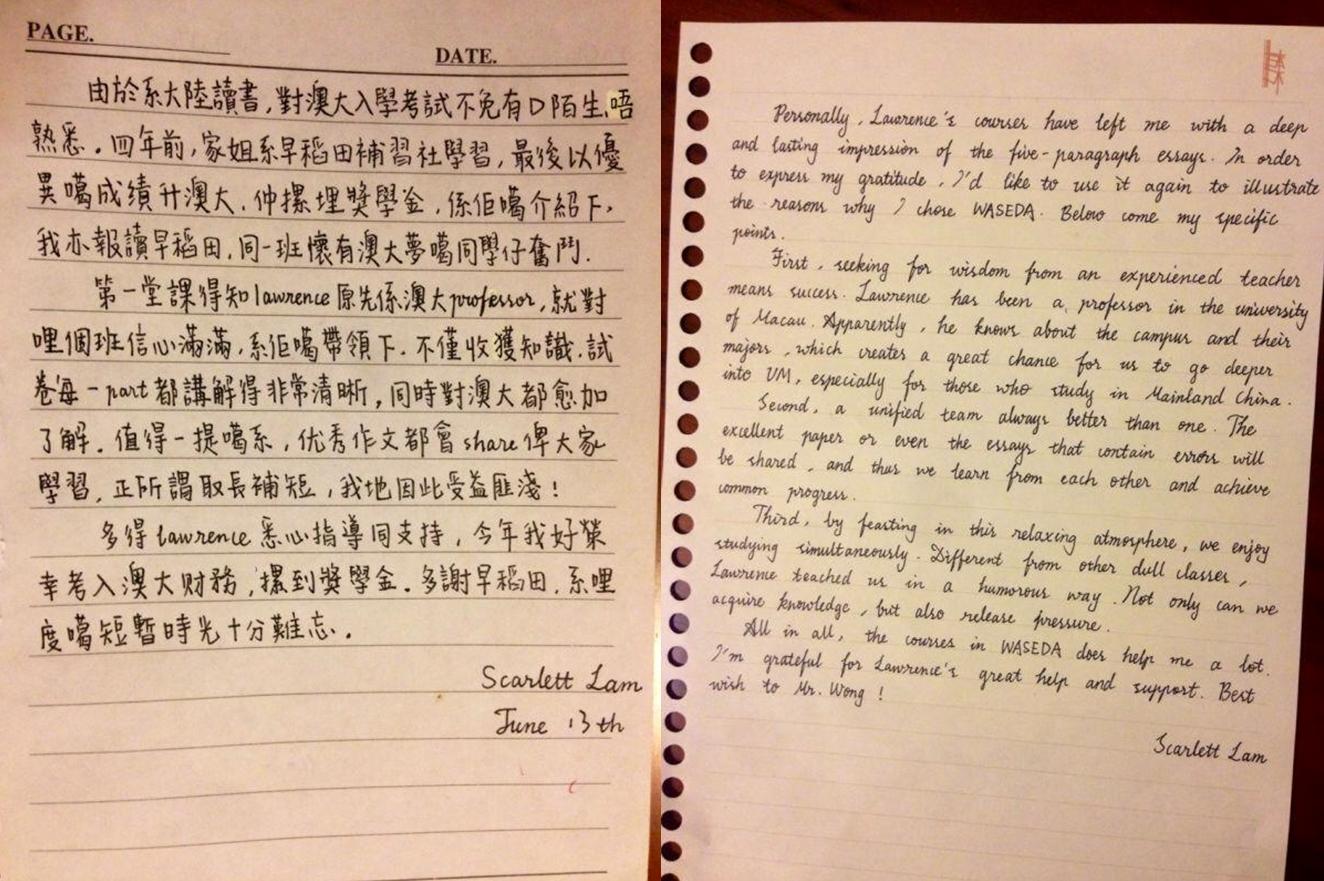 PAGE.
DATE.
由於系大陸讀書,對澳大入學考試不免有D陌生,唔
熟悉。四年前,家姐系早稻田補習社學習,最後以優
異噶成绩升澳大,仲攞埋獎學金,係佢噶介紹下,
我亦報讀早稻田,同一班懷有澳大夢噶同學仔奮鬥.
第一堂課得知lawrence原先係澳大professor,就對
哩個班信心滿滿,系佢噶帶領下.不僅收獲知識.試
卷每一part都講解得非常清晰,同時對澳大都愈加
了解。值得一提噶系,优秀作文都會share俾大家
學習,正所謂取長補短,我地因此受益匪淺!
多得lawrence悉心指導同支持,今年我好榮
幸考入澳大财務,攞到獎學金.多謝早稻田.系哩
度噶短暫時光十分難忘.
Scarlett Lam
June 13th
Personally, Lawrence's courses have left me with a deep
and lasting impression of the five-paragraph essays. In order
to express my gratitude, I'd like to use it again to illustrate
the reasons why I chose WASEDA. Below come my specific
points.
First, seeking for wisdom from an experienced teacher
means success. Lawrence has been a professor in the university
of Macau. Apparently, he knows about the campus and their
majors, which creates a great chance for us to go deeper
into UM, especially for those who study in Mainland China.
Second, a unified team always better than one. The
excellent paper or even the essays that contain errors will
be shared, and thus we learn from each other and achieve
common progress.
Third, by feasting in this relaxing atmosphere, we enjoy
studying simultaneously. Different from other dull classes,
Lawrence teached us in a humorous way. Not only can we
acquire knowledge, but also release pressure.
All in all, the courses in WASEDA does help me a lot.
I'm grateful for Lawrence's great help and support. Best
wish to Mr. Wong!
Scarlett Lam